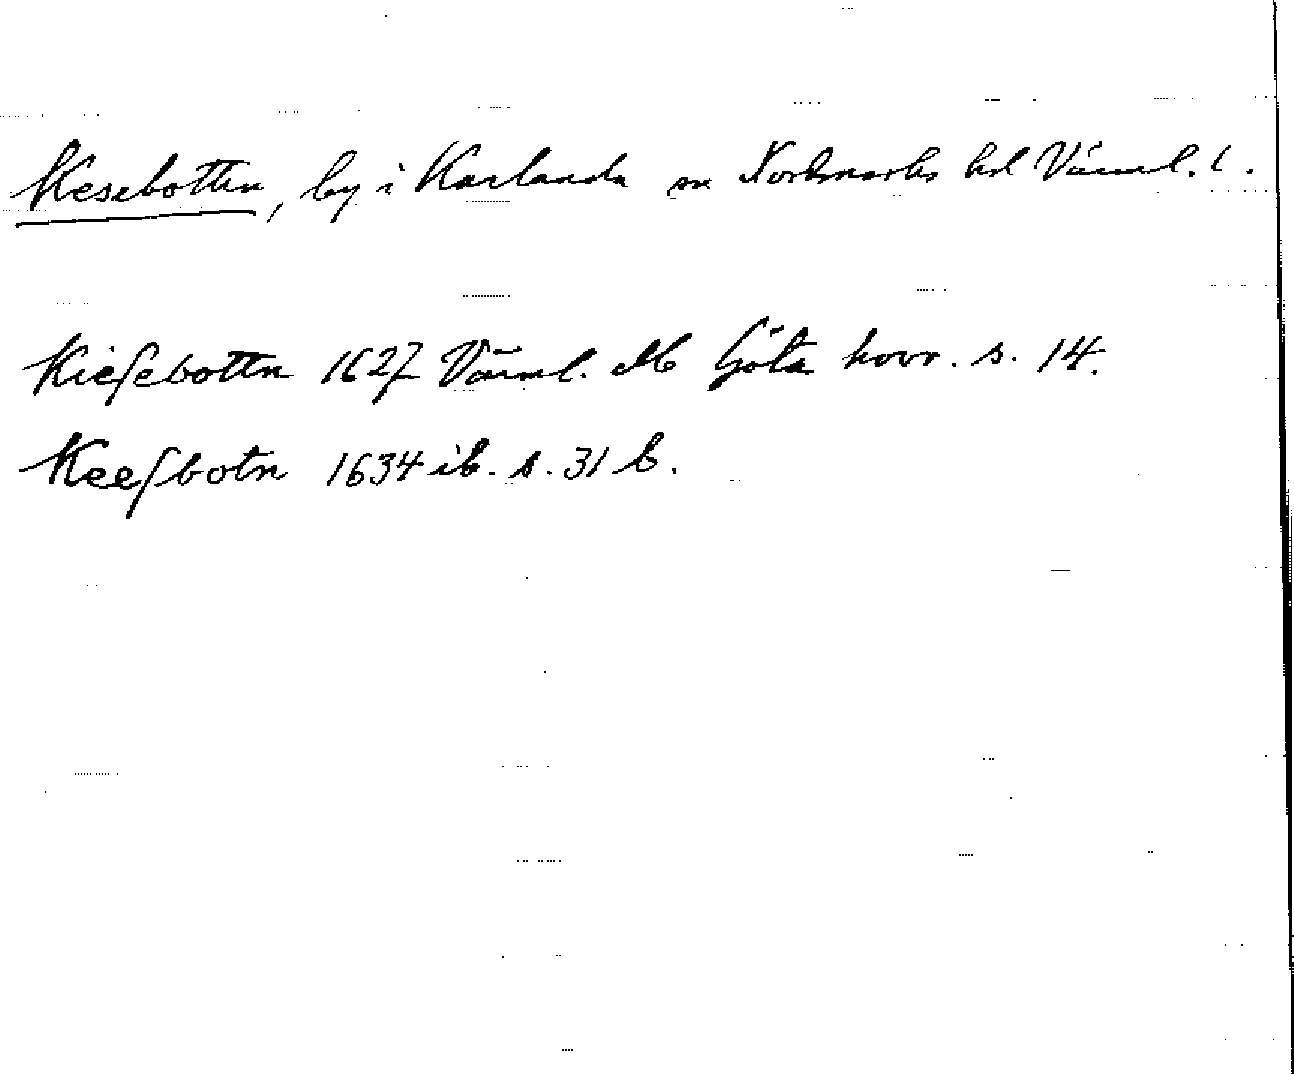 Kesebotten, by i Karlanda sn Nordmarks hd Värml. l.
Kieſebottn 1627 Värml. Göta hovr. s. 14.
Keeſbotn 1634 ib. s. 31 b.